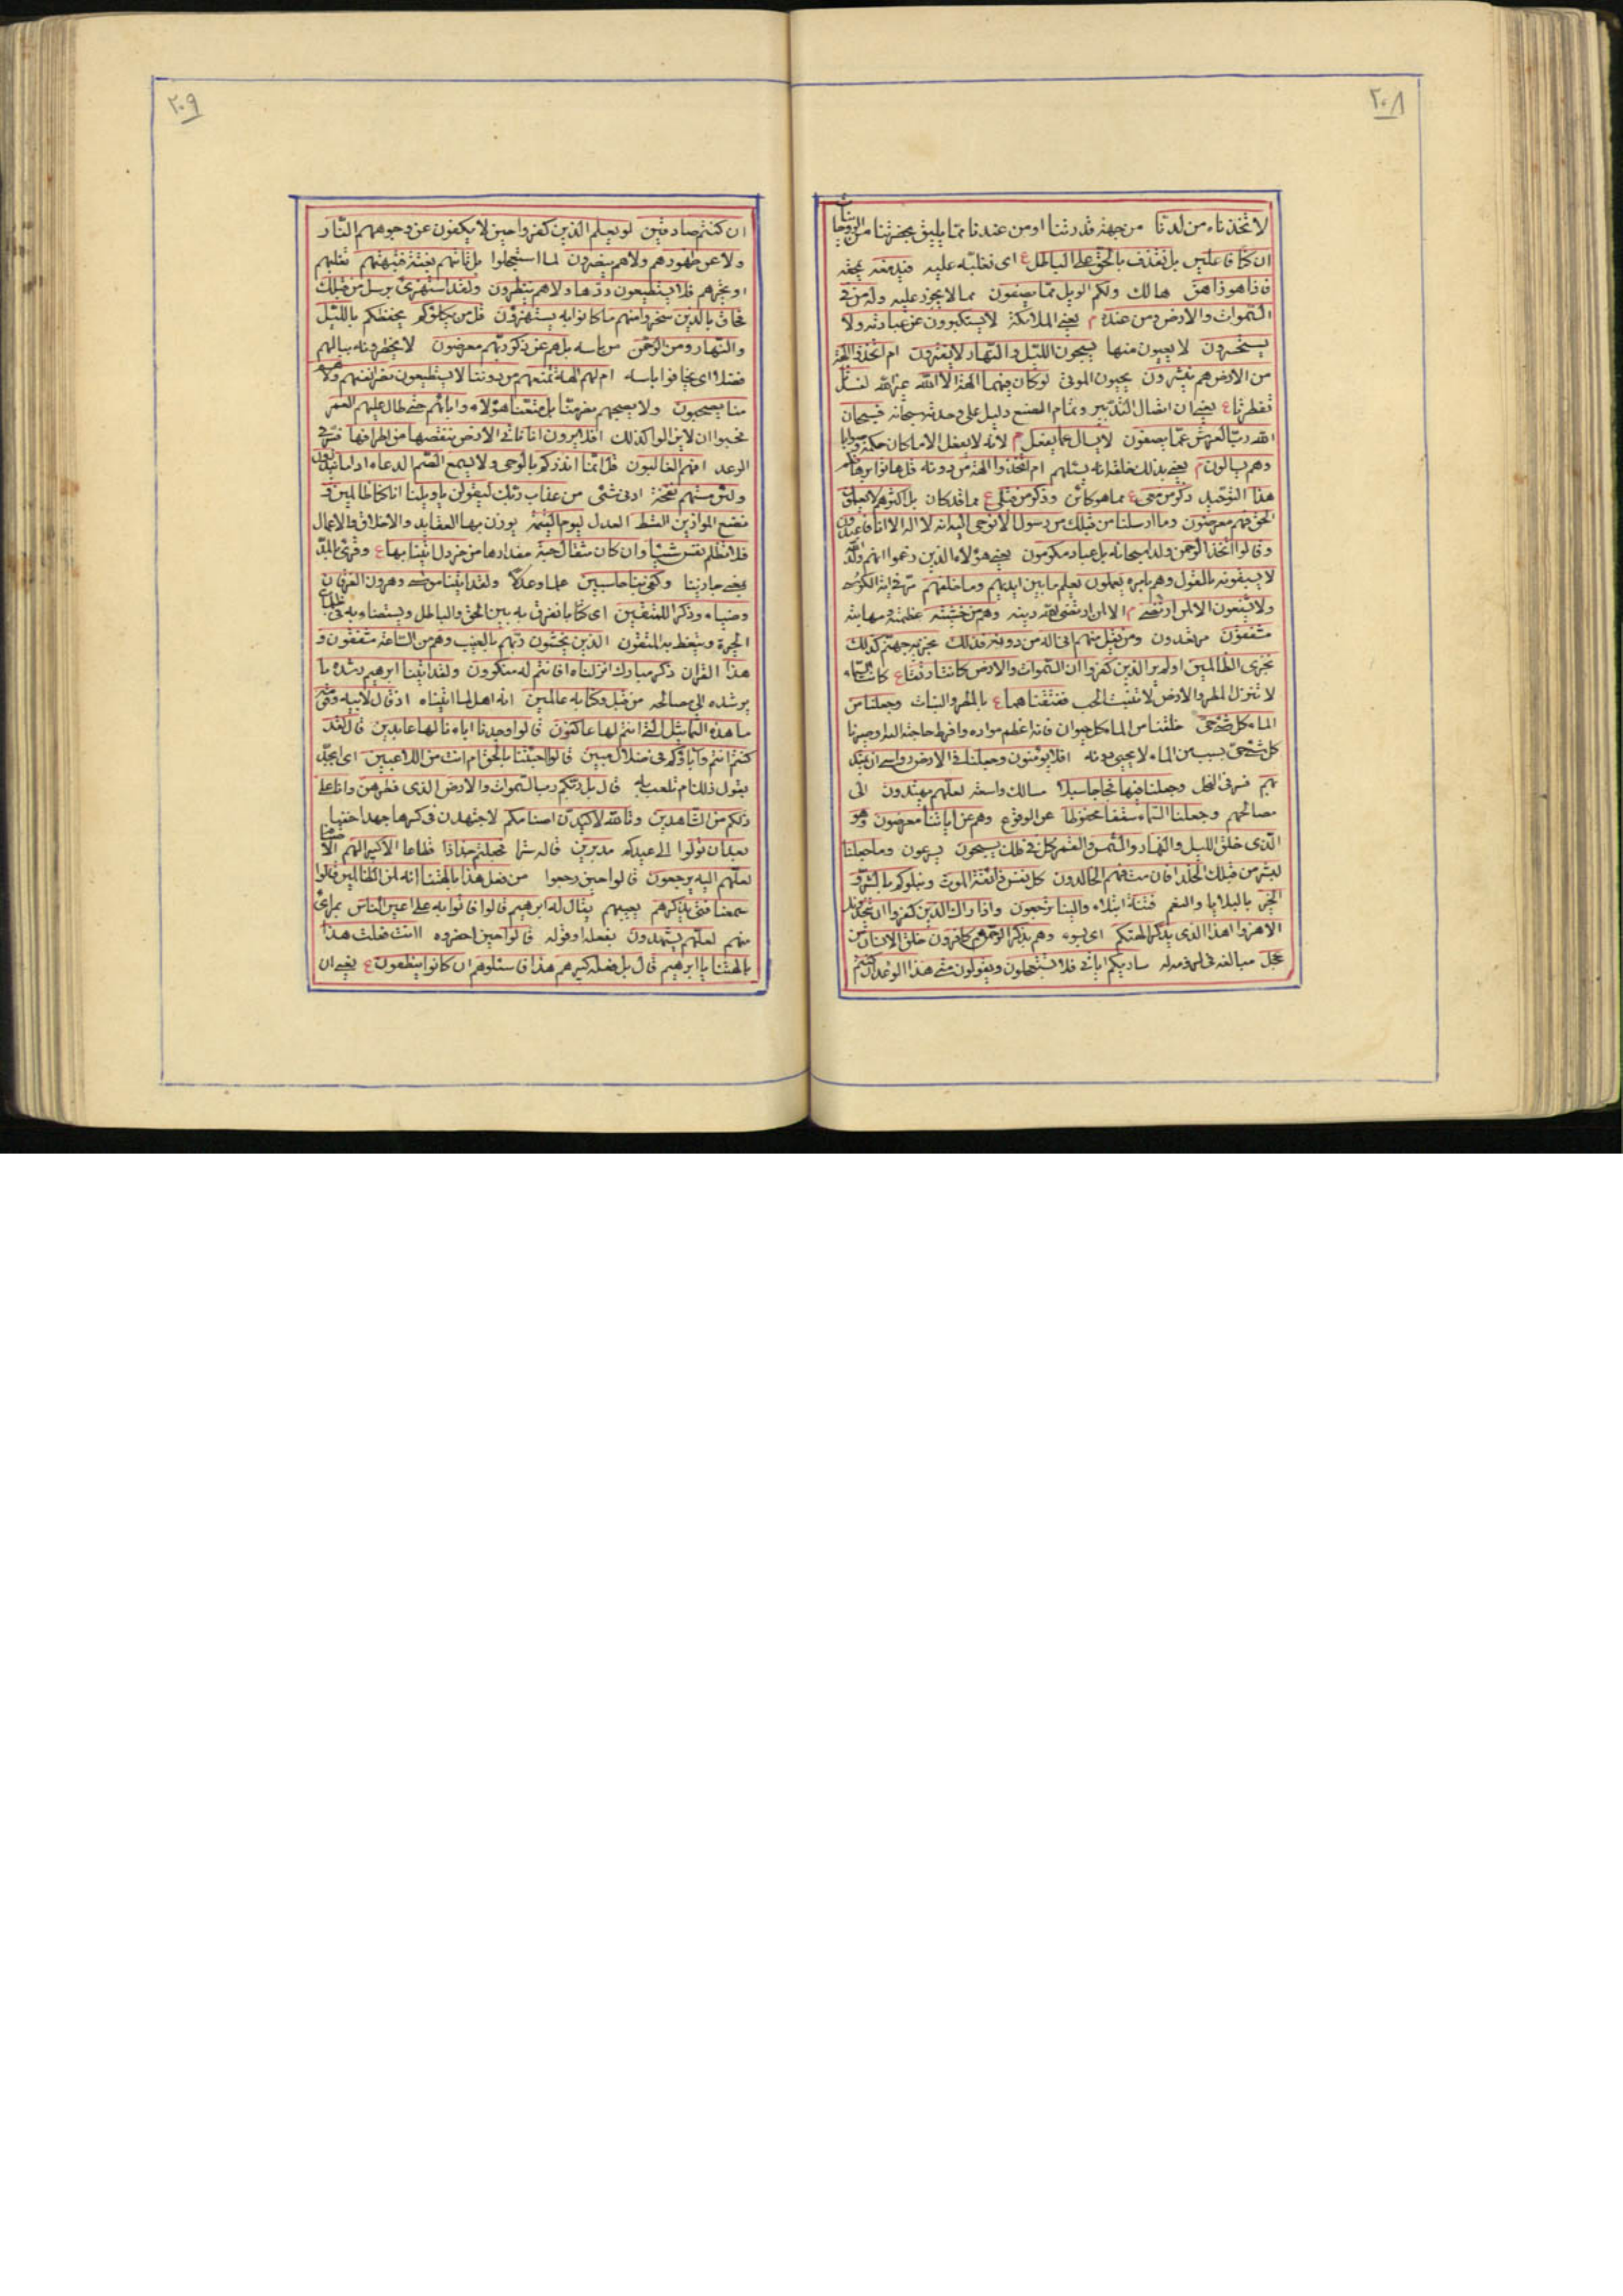 ٢٠٨
لاتخذناه من لدنا من جهة قدرتنا او من عندنا مما يليق بحضرتنا من الروحانيات
ان كنا فاعلين بل نقذف بالحق على الباطل ع اى نغلبه عليه فيدمغه يمحقه
فاذا هو زاهق هالك ولكم الويل مما تصفون مما لا يجوز عليه وله من فى
السموات والارض ومن عنده م يعنى الملائكة لا يستكبرون عن عبادته ولا
يستحسرون لا يعيون منها يسبحون الليل والنهار لا يفترون ام اتخذوا الهة
من الارض هم ينشرون يحيون الموتى لو كان فيهما الهة الا الله غير الله لفسدتا
تفطرتا ع يعنى ان اتصال التدبير وتمام الصنع دليل على وحدته سبحانه فسبحان
الله رب العرش عما يصفون لا يسال عما يفعل م لانه لا يفعل الا ما كان حكمة وصوابا
وهم يسالون م يعنى بذلك خلقه انه يسئلهم ام اتخذوا الهة من دونه قل هاتوا برهانكم
هذا التوحيد ذكر من معى ع بما هو كائن وذكر من قبلى ع بما قد كان بل اكثرهم لا يعلمون
الحق فهم معرضون وما ارسلنا من قبلك من رسول الا نوحى اليه انه لا اله الا انا فاعبدون
وقالوا اتخذ الرحمن ولدا سبحانه بل عباد مكرمون يعنى هؤلاء الذين زعموا انهم ولد الله
لا يسبقونه بالقول وهم بامره يعملون يعلم ما بين ايديهم وما خلفهم مر فى اية الكرسى
ولا يشفعون الا لمن ارتضى م الا لمن ارتضى الله دينه وهم من خشيته عظمته ومهابته
مشفقون مرتعدون ومن يقل منهم انى اله من دونه فذلك نجزيه جهنم كذلك
نجزى الظالمين اولم ير الذين كفروا ان السموات والارض كانتا رتقا ع كانت السماء
لا تنزل المطر والارض لا تنبت الحب ففتقناهما ع بالمطر والنبات وجعلنا من
الماء كل شئ حى خلقنا من الماء كل حيوان فانه اعظم مواده وافرط حاجته اليه او صيرنا
كل شئ حى بسبب من الماء لا يحيى دونه افلا يؤمنون وجعلنا فى الارض رواسى ان تميد
بهم فسر فى النحل وجعلنا فيها فجاجا سبلا مسالك واسعة لعلهم يهتدون الى
مصالحهم وجعلنا السماء سقفا محفوظا عن الوقوع وهم عن اياتنا معرضون وهو
الذى خلق الليل والنهار والشمس والقمر كل فى فلك يسبحون يسرعون وما جعلنا
لبشر من قبلك الخلد افان مت فهم الخالدون كل نفس ذائقة الموت ونبلوكم بالشر و
الخير بالبلايا والنعم فتنة ابتلاء والينا ترجعون واذا راك الذين كفروا ان يتخذونك
الا هزوا اهذا الذى يذكر الهتكم اى بسوء وهم بذكر الرحمن هم كافرون خلق الانسان من
عجل مبالغة فى لزومه له ساريكم اياتى فلا تستعجلون ويقولون متى هذا الوعد ان كنتم
٢٠٩
ان كنتم صادقين لو يعلم الذين كفروا حين لا يكفون عن وجوههم النار
ولا عن ظهورهم ولا هم ينصرون لما استعجلوا بل تاتيهم بغتة فتبهتهم تغلبهم
او تحيرهم فلا يستطيعون ردها ولا هم ينظرون ولقد استهزئ برسل من قبلك
فحاق بالذين سخروا منهم ما كانوا به يستهزؤن قل من يكلؤكم يحفظكم بالليل
والنهار ومن الرحمن من باسه بل هم عن ذكر ربهم معرضون لا يخطرونه ببالهم
فضلا ان يخافوا باسه ام لهم الهة تمنعهم من دوننا لا يستطيعون نصر انفسهم ولا هم
منا يصحبون ولا يصحبهم نصر منا بل متعنا هؤلاء واباءهم حتى طال عليهم العمر
فحسبوا ان لا يزالوا كذلك افلا يرون انا ناتى الارض ننقصها من اطرافها فسر فى
الرعد افهم الغالبون قل انما انذركم بالوحى ولا يسمع الصم الدعاء اذا ما ينذرون
ولئن مستهم نفحة ادنى شئ من عذاب ربك ليقولن يا ويلنا انا كنا ظالمين و
نضع الموازين القسط العدل ليوم القيمة يوزن بها العقايد والاخلاق والاعمال
فلا تظلم نفس شيئا وان كان مثقال حبة مقدارها من خردل اتينا بها ع وقرئ بالمد
يعنى جازينا وكفى بنا حاسبين علما وعدلا ولقد اتينا موسى وهرون الفرقان
وضياء وذكرا للمتقين اى كتابا تفرق به بين الحق والباطل ويستضاء به فى ظلمات
الحيرة ويتعظ به المتقون الذين يخشون ربهم بالغيب وهم من الساعة مشفقون و
هذا القران ذكر مبارك انزلناه افانتم له منكرون ولقد اتينا ابرهيم رشده ما
يرشده الى مصالحه من قبل وكنا به عالمين انه اهل لما اتيناه اذ قال لابيه وقومه
ما هذه التماثيل التى انتم لها عاكفون قالوا وجدنا اباءنا لها عابدين قال لقد
كنتم انتم وآباؤكم فى ضلال مبين قالوا اجئتنا بالحق ام انت من اللاعبين اى بجد
تقول ذلك ام تلعب به قال بل ربكم رب السموات والارض الذى فطرهن وانا على
ذلكم من الشاهدين وتالله لاكيدن اصنامكم لاجتهدن فى كسرها جهدا خفيا
بعد ان تولوا الى عيدكم مدبرين فجعلهم جذاذا قطاعا الا كبيرا لهم
لعلهم اليه يرجعون قالوا حين رجعوا من فعل هذا بالهتنا انه لمن الظالمين قالوا
سمعنا فتى يذكرهم يعيبهم يقال له ابرهيم قالوا فاتوا به على اعين الناس بمراى
منهم لعلهم يشهدون بفعله او قوله قالوا حين احضروه اانت فعلت هذا
بالهتنا يا ابرهيم قال بل فعله كبيرهم هذا فاسئلوهم ان كانوا ينطقون ع يعنى ان